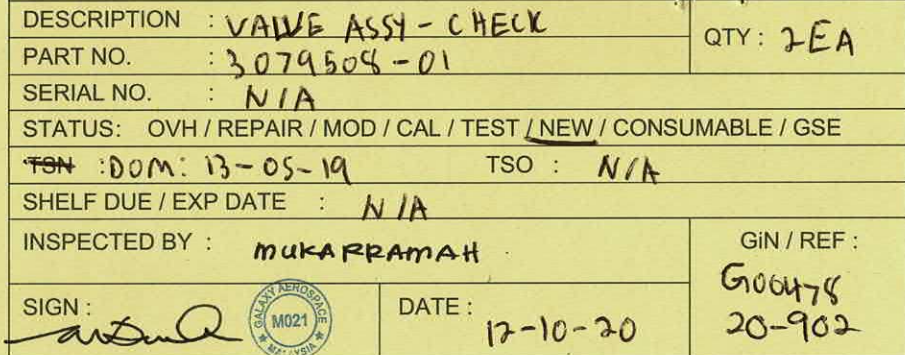 DESCRIPTION : VALVE ASSY - CHECK
QTY: 2EA
PART NO. : 3079508-01
SERIAL NO. : N/A
STATUS: OVH / REPAIR / MOD / CAL / TEST / NEW / CONSUMABLE / GSE
TSN : DOM: 13-05-19 TSO : N/A
SHELF DUE / EXP DATE : N/A
INSPECTED BY : MUKARRAMAH
GiN / REF :
G00478
20-902
SIGN :
GALAXY AEROSPACE
M021
MALAYSIA
DATE : 12-10-20